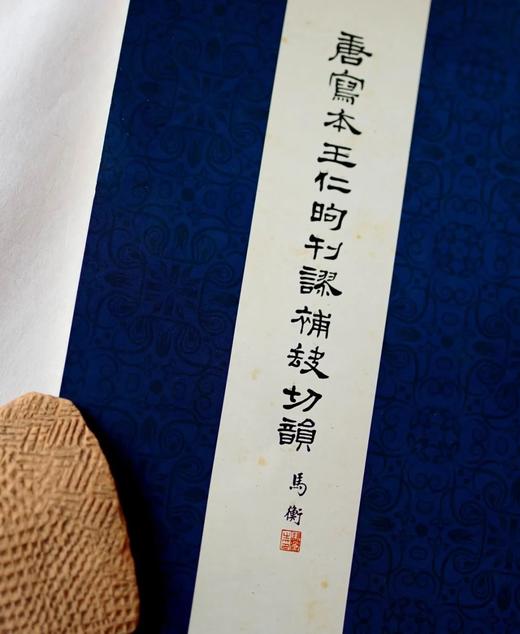 唐寫本王仁昫刊謬補缺切韻
馬衡